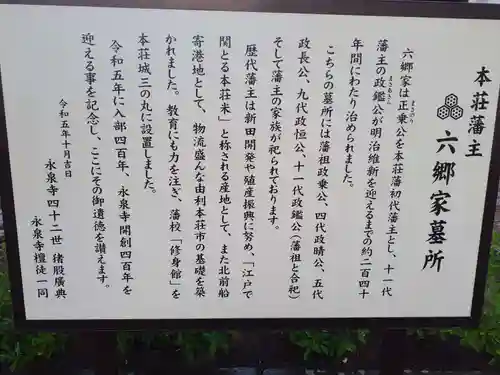 本荘藩主
六郷家墓所
六郷家は正乗公を本荘藩初代藩主とし、十一代
まさのり
藩主の政鑑公が明治維新を迎えるまでの約二百四十
まさあきら
年間にわたり治められました。
こちらの墓所には藩祖政乗公、四代政晴公、五代
政長公、九代政恒公、十一代政鑑公（藩祖と合祀）
そして藩主の家族が祀られております。
歴代藩主は新田開発や殖産振興に努め、「江戸で
聞とる本荘米」と称される産地として、また北前船
寄港地として、物流盛んな由利本荘市の基礎を築
かれました。教育にも力を注ぎ、藩校「修身館」を
本荘城三の丸に設置しました。
令和五年に入部四百年、永泉寺開創四百年を
迎える事を記念し、ここにその御遺徳を讃えます。
令和五年十月吉日
永泉寺四十二世 猪股廣典
永泉寺檀徒一同